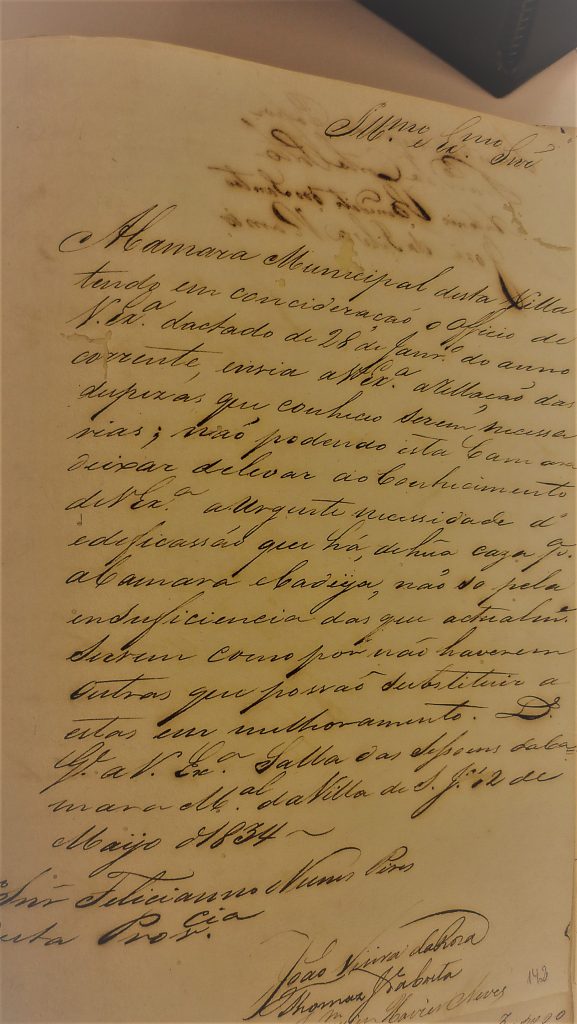 Ill.mo e Ex.mo Snr.
A Camara Municipal desta Villa
tendo em concideração o Officio de
V. Ex.a dactado de 28 de Janr.o do anno
corrente, envia a V. Ex.a a Rellação das
dispezas que conheceo serem necessa
rias; não podendo esta Camara
deixar de levar ao Conhecimento
de V. Ex.a a Urgente necessidade d'
edeficassão que há, de hũa caza p.a
a Camara e Cadeya, não so pela
insuficiencia das que actualm.e
servem como por não haverem
outras que possão substituir a
estas em milhoramento. D.s
G.e a V. Ex.a Salla das Sessoens da Ca=
mara M.al da Villa de S. J.e 12 de
Maijo d'1834
Snr Felicianno Nunes Pires
desta Prov.cia
João Vieira da Roza
Thomaz da Costa
Xavier Neves
143